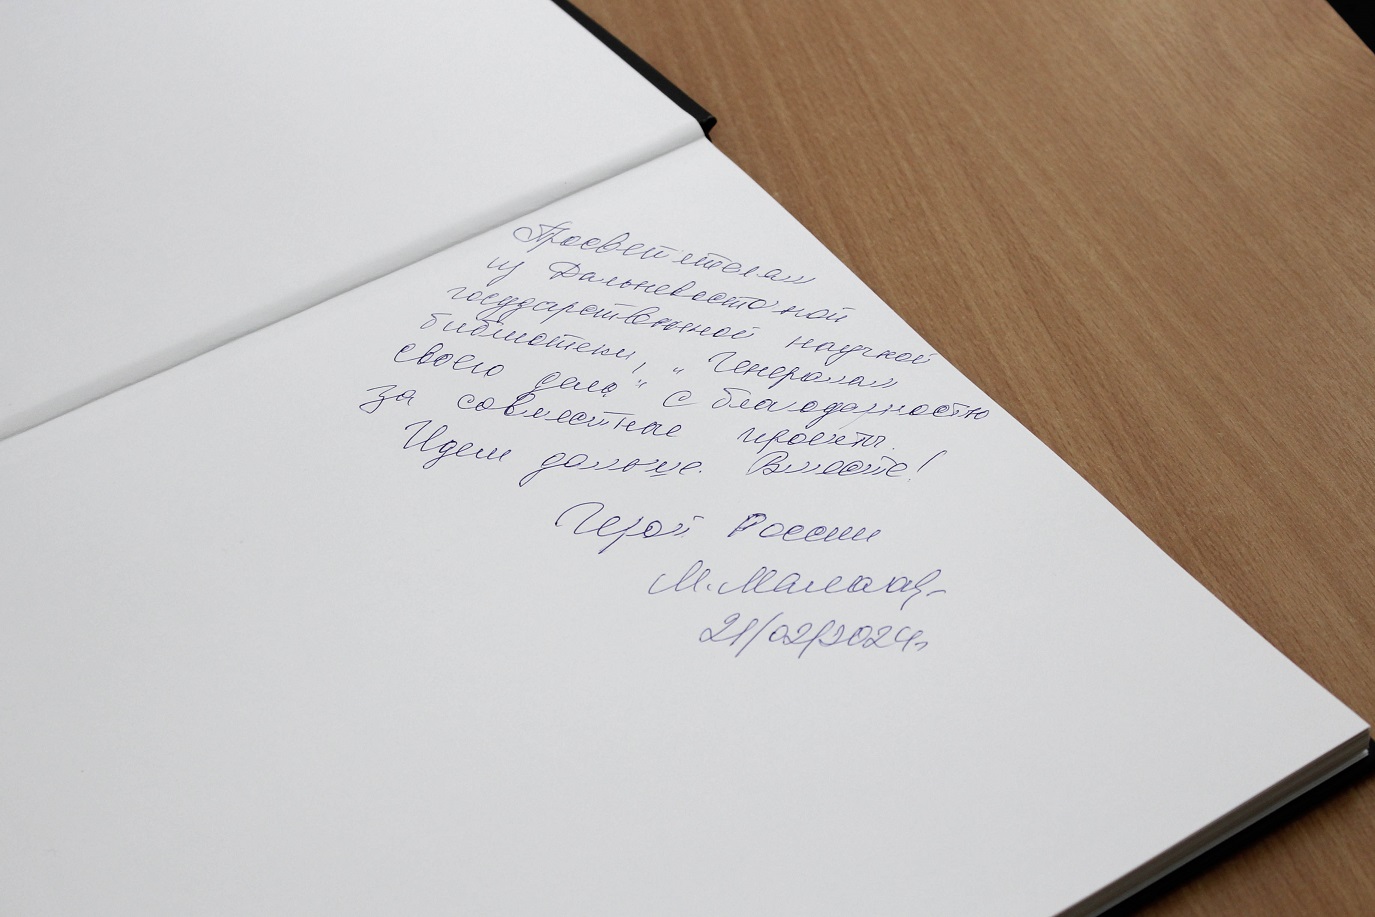 Просветителям
из Дальневосточной
государственной научной
библиотеки, "Генералам
своего дела" с благодарностью
за совместные проекты.
Идем дальше. Вместе!
Герой России
М. Малаа
21/02/2024г.